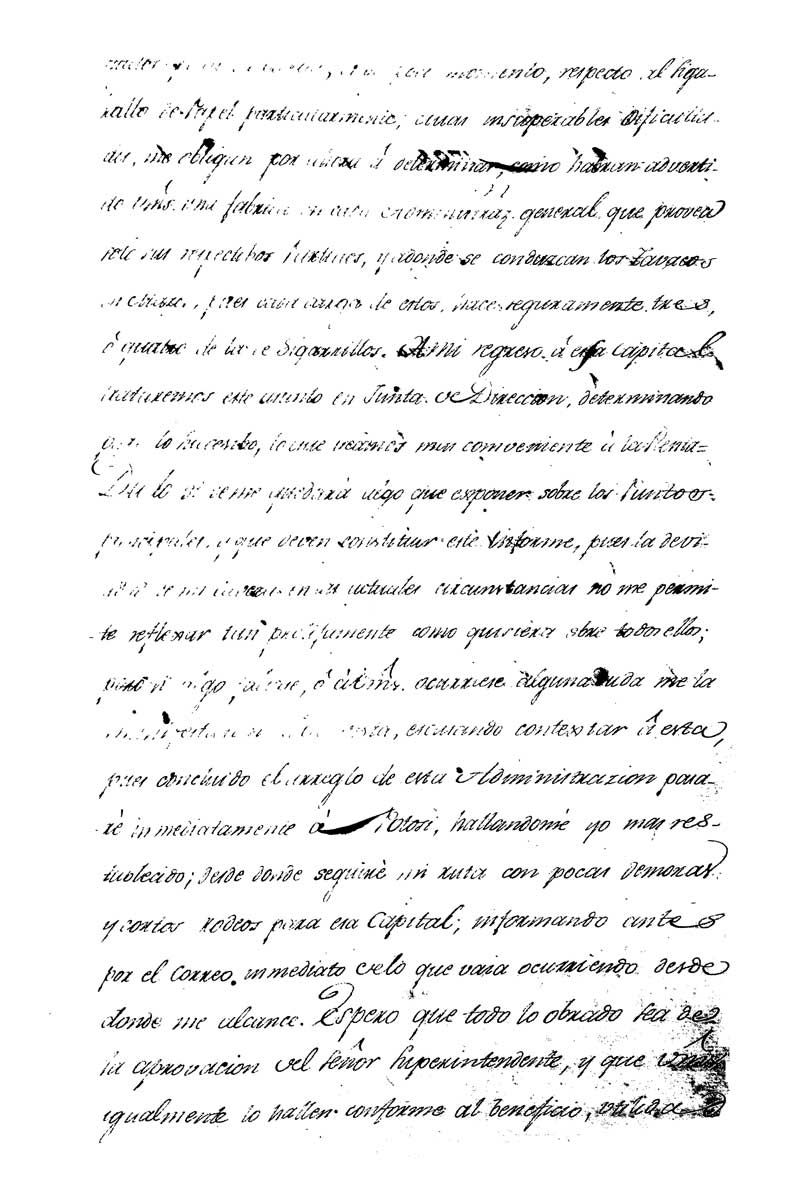 momento, respecto al Siga-
rrillo de Papel particularmente, cuias insuperables dificulta-
des, me obligan por ahora á determinar, como habran adverti-
do Vms. una fabrica en cada Administraz. general que provea
solo sus respectibos Partidos, y adonde se conduzcan los Tavacos
en clase, pues cada carga de estos, hace seguramente tres,
ó quatro de la de Sigarrillos. A mi regreso á esa Capital
trataremos este asunto en Junta de Direccion, determinando
lo que veamos mas conveniente á la Renta=
algo que exponer sobre los Puntos
principales, y que deven constituir este Informe, pues la devi-
lidad de mi cabeza en las actuales circunstancias no me permi-
te reflexar tan prolijamente como quisiera sobre todos ellos;
pero si algo á Vms. ocurriese alguna duda me la
escusando contextar á esta,
pues concluido el arreglo de esta Administrazion pasa-
ré inmediatamente á Potosi, hallandome yo mas res-
tablecido; desde donde seguiré mi ruta con pocas demoras
y cortos rodeos para esa Capital; informando antes
por el Correo inmediato de lo que vaia ocurriendo desde
donde me alcance. Espero que todo lo obrado sea de
la aprovacion del Señor Superintendente, y que Vms.
igualmente lo hallen conforme al beneficio, utilida